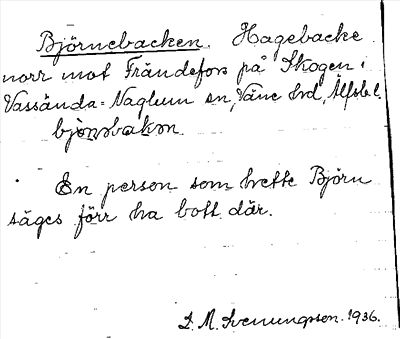 Björnebacken. Hagebacke
norr mot Frändefors på Skogen i
Vassända-Naglum sn, Väne hd, Älfsb. l.
bjo̤nnbakɯn
En person som hette Björn
säges förr ha bott där.
L. M. Svenungsson. 1936.